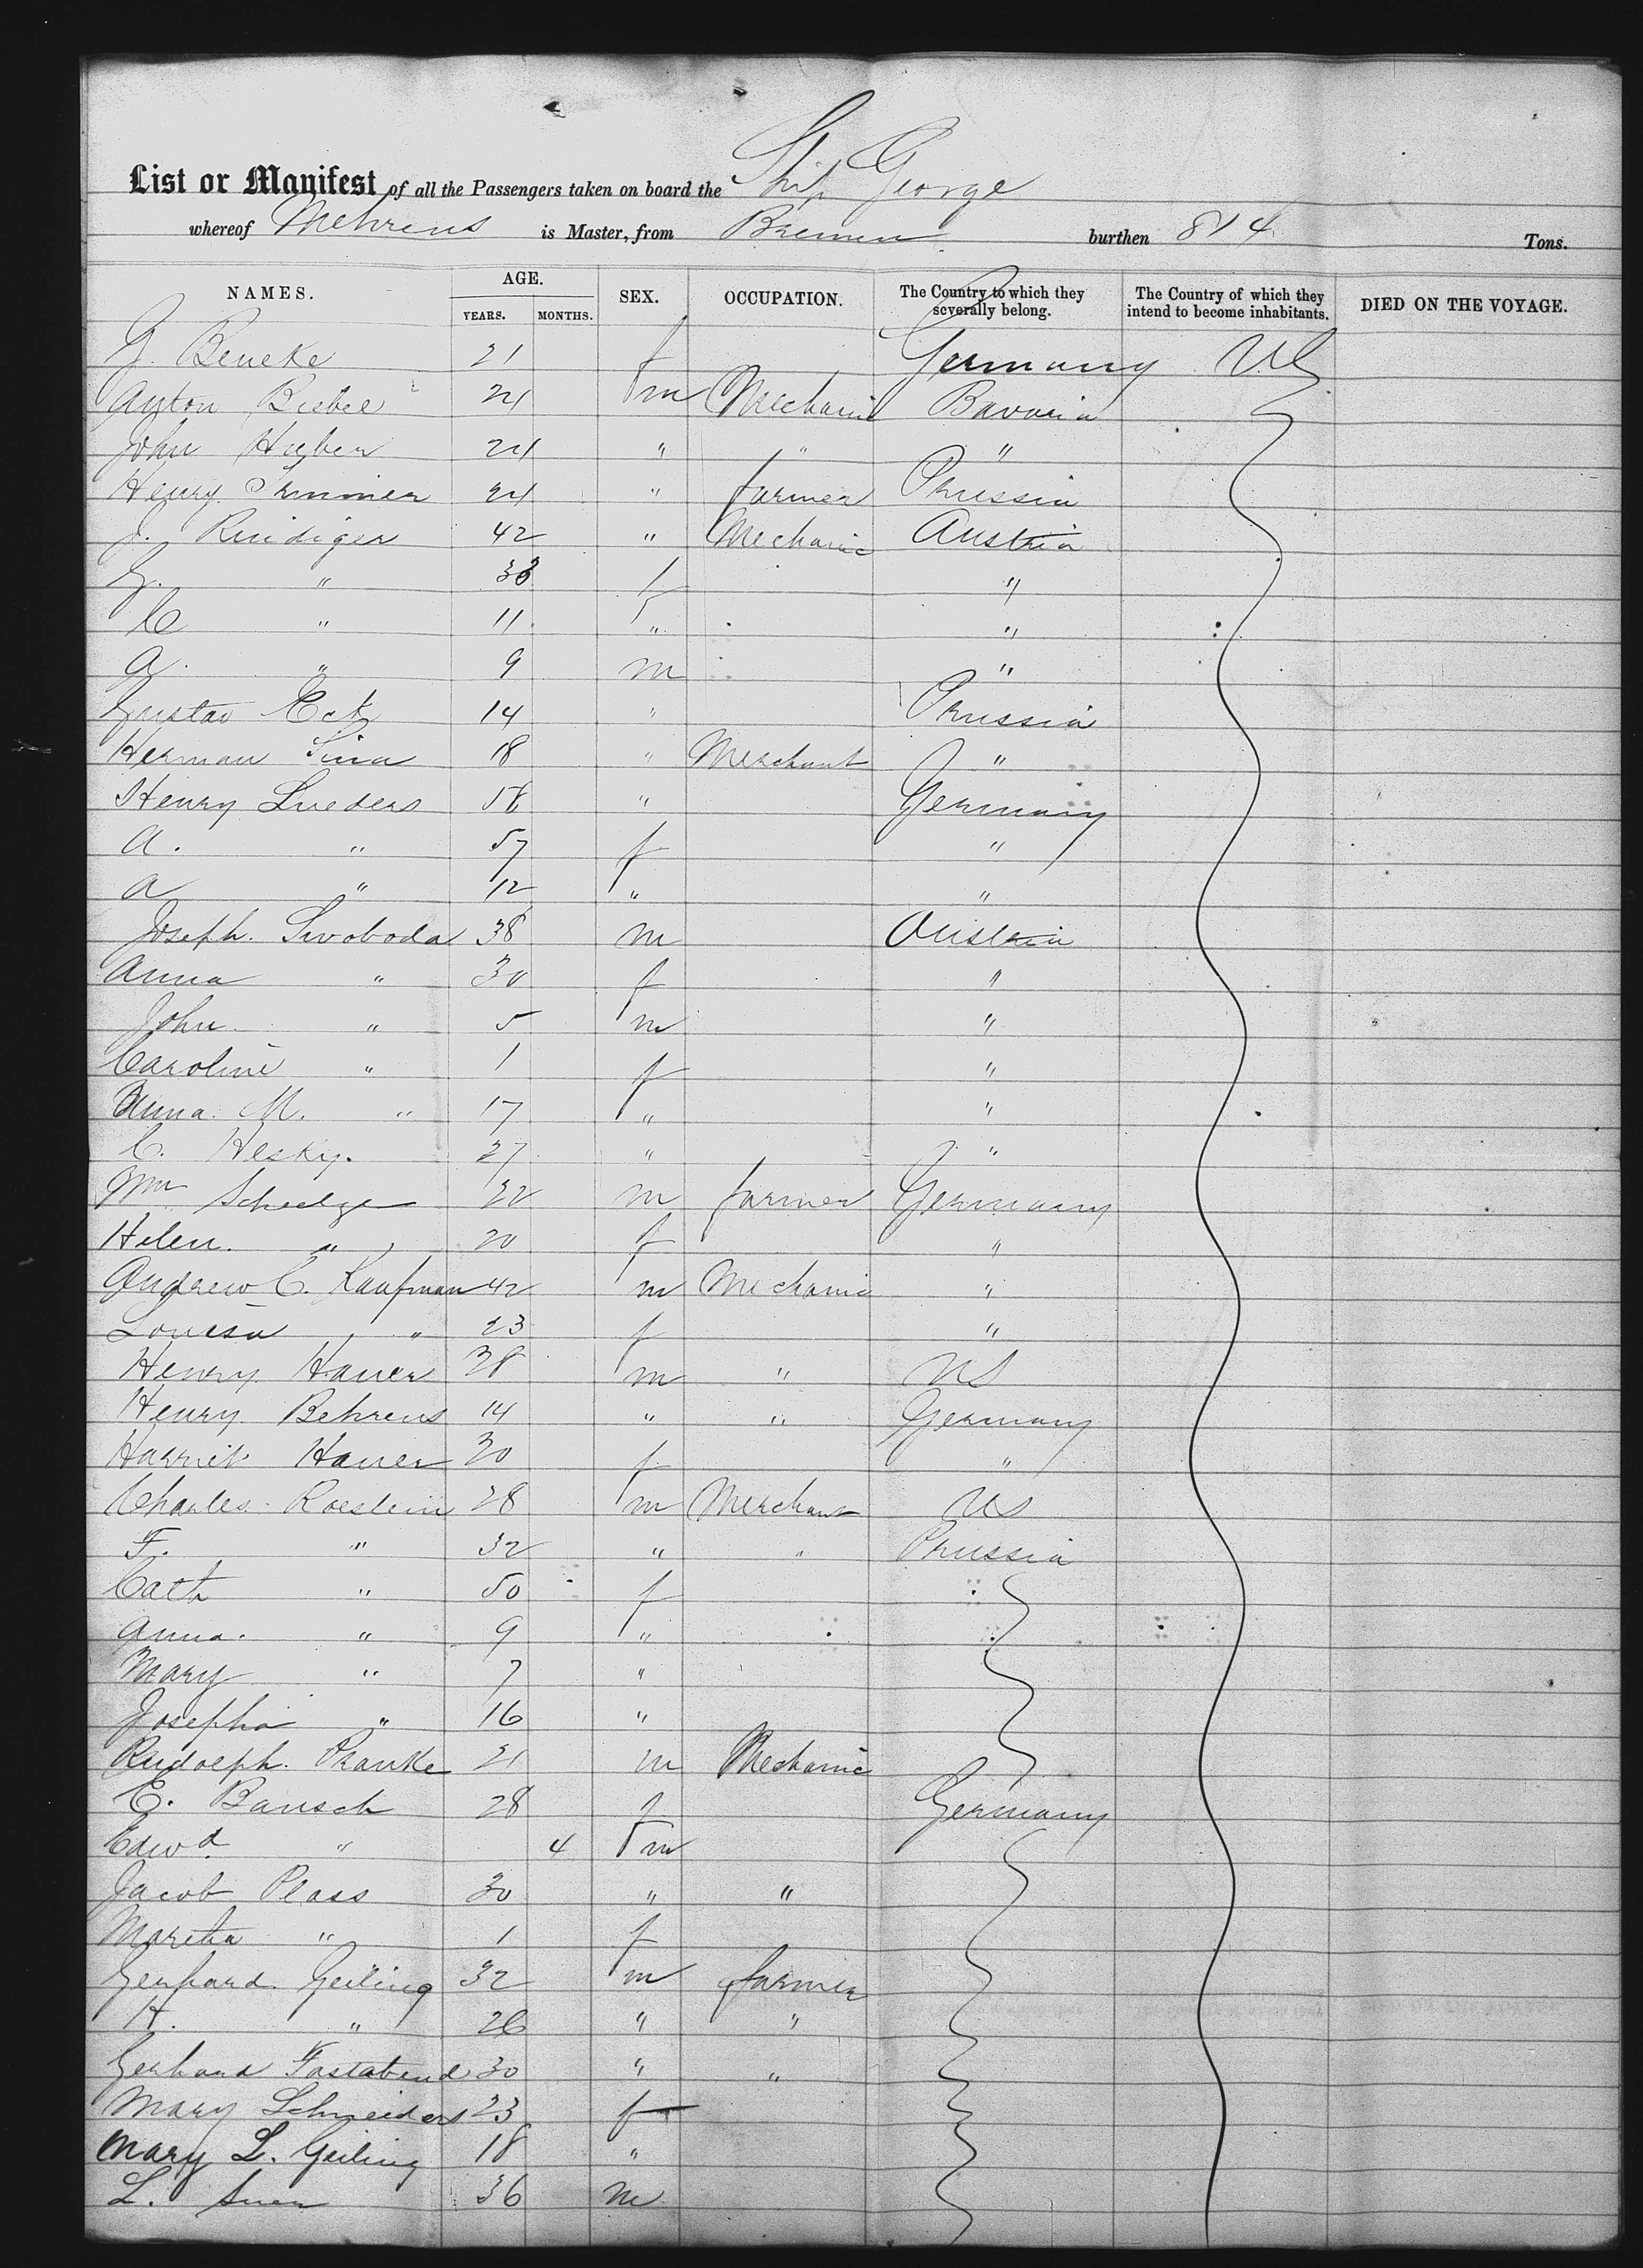 List or Manifest of all the Passengers taken on board the Ship George
whereof Mehrens is Master, from Bremen burthen 814 Tons.
NAMES. AGE. YEARS. MONTHS. SEX. OCCUPATION. The Country to which they severally belong. The Country of which they intend to become inhabitants. DIED ON THE VOYAGE.
G. Beneke 21 f Germany US
Anton Biebel 24 m Mechanic Bavaria
John Huber 24 " " "
Henry 24 " farmer Prussia
J. Ruidiger 42 " Mechanic Austria
G. " 33 f "
C " 11 " "
A. " 9 m "
Gustav Eck 14 " Prussia
Herman Sina 18 " Merchant "
Henry Lueders 58 " Germany
A. " 57 f "
A " 12 " "
Joseph. Swoboda 38 m Austria
Anna " 30 f "
John " 5 m "
Caroline " 1 f "
Anna M. " 17 " "
C. Hesky. 27 " "
Wm Schulze 32 m farmer Germany
Helen. " 20 f "
Andrew C. Kaufman 42 m Mechanic "
Louisa " 23 f "
Henry Hauer 38 m " US
Henry Behrens 14 " " Germany
Harriet Hauer 30 f "
Charles Roeslein 28 m Merchant US
F. " 32 " " Prussia
Cath " 50 f
Anna. " 9 "
Mary " 7 "
Josepha " 16 "
Rudolph. Pranke 21 m Mechanic
E. Bausch 28 f Germany
Edwd " 4 m
Jacob Plass 30 " "
Martha " 1 f
Gerhard Geiling 32 m farmer
H. " 26 " "
Gerhard Fastabend 30 " "
Mary Schneiders 23 f
Mary L. Geiling 18 "
L. 36 m